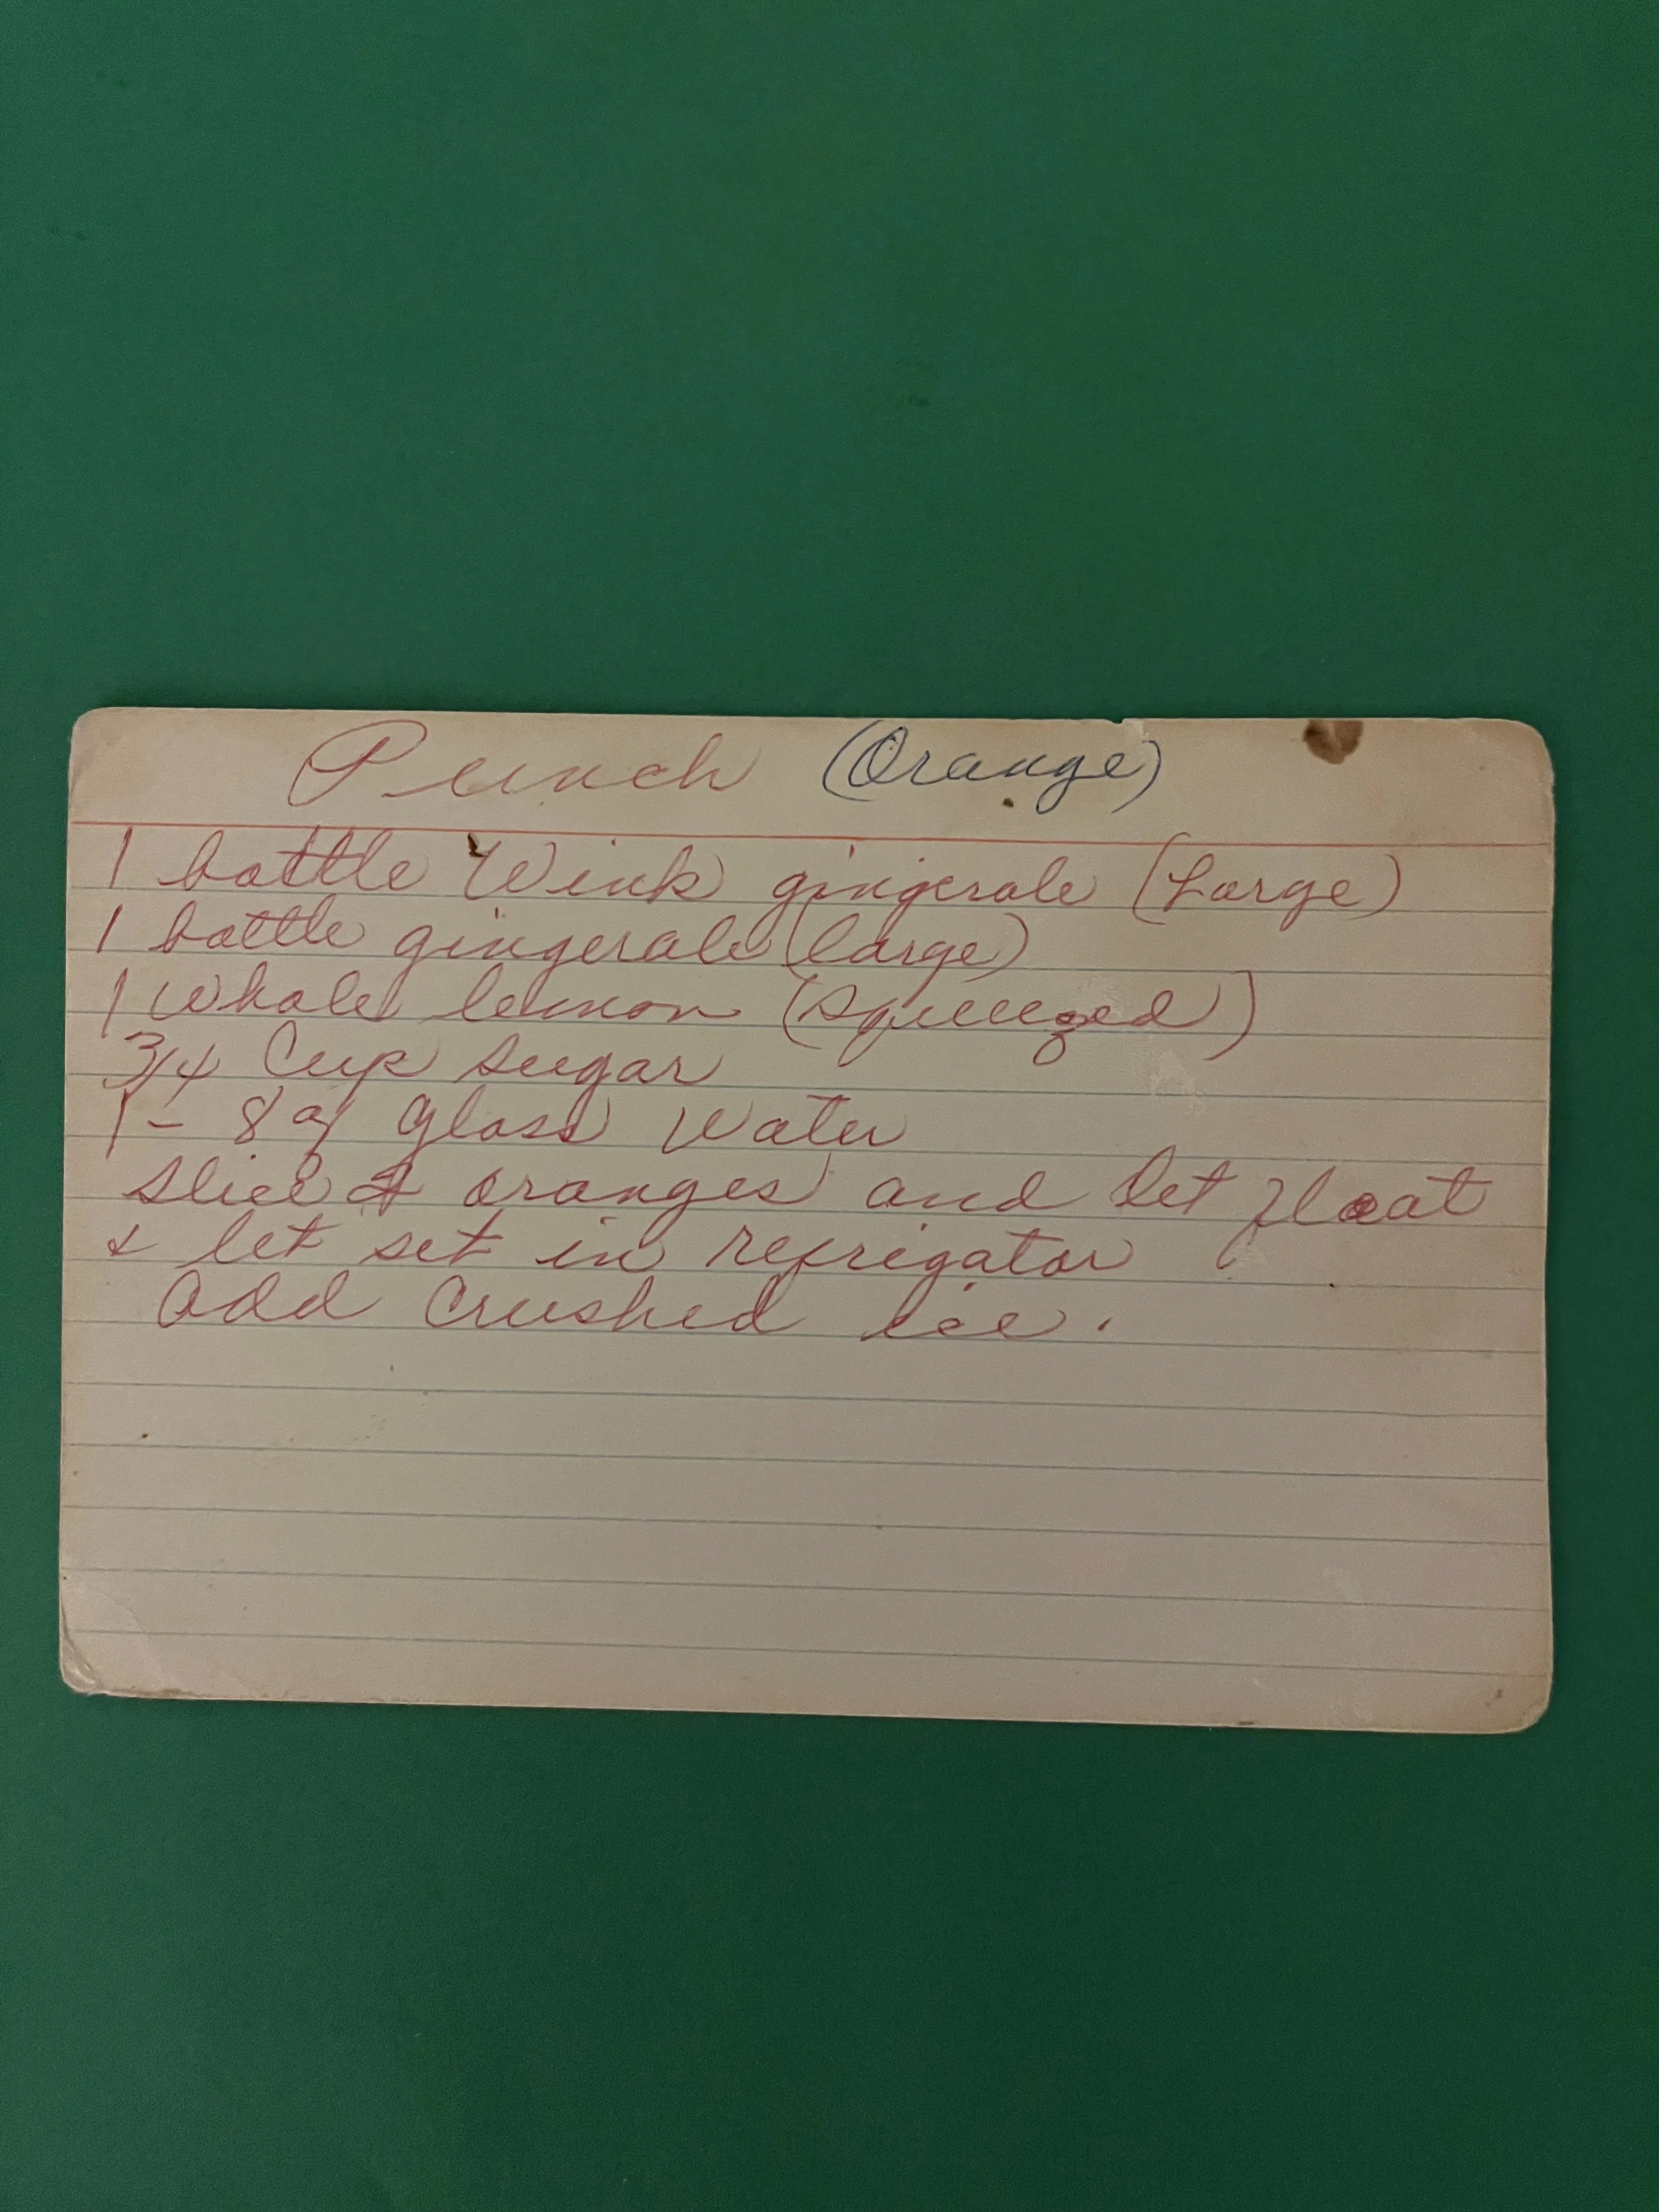 Punch (Orange)
1 bottle Wink gingerale (Large)
1 bottle gingerale (large)
1 whole lemon (squeezed)
3/4 Cup sugar
1 - 8 oz glass water
slice oranges and let float
& let set in refrigator
add crushed ice.